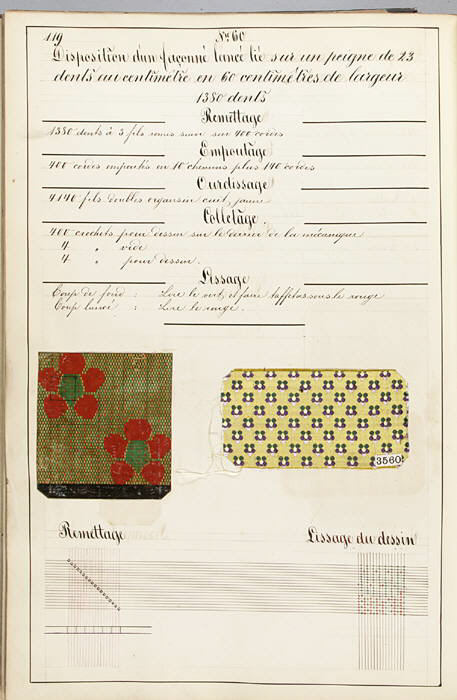 119
No. 60
Disposition d'un façonné lancé lié sur un peigne de 23
dents au centimètre en 60 centimètres de largeur
1380 dents
Remettage
1380 dents à 3 fils suivi sur 400 cordes
Empoutage
400 cordes empoutés en 10 chemins plus 140 cordes
Ourdissage
4140 fils doubles organsin cuit, jaune
Colletage.
400 crochets pour dessin sur le derrier de la mécanique
4 " vide
4 " pour dessin.
Lissage
Coup de fond : Lire le vert, et faire taffetas sous le rouge
Coup lancé : Lire le rouge.
3560
Remettage
Lissage du dessin